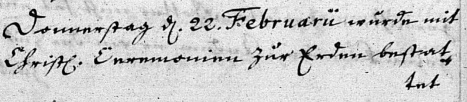 Donnerstag d. 22. Februarii wurde mit
Christl. Ceremonien zur Erden bestat„
tet